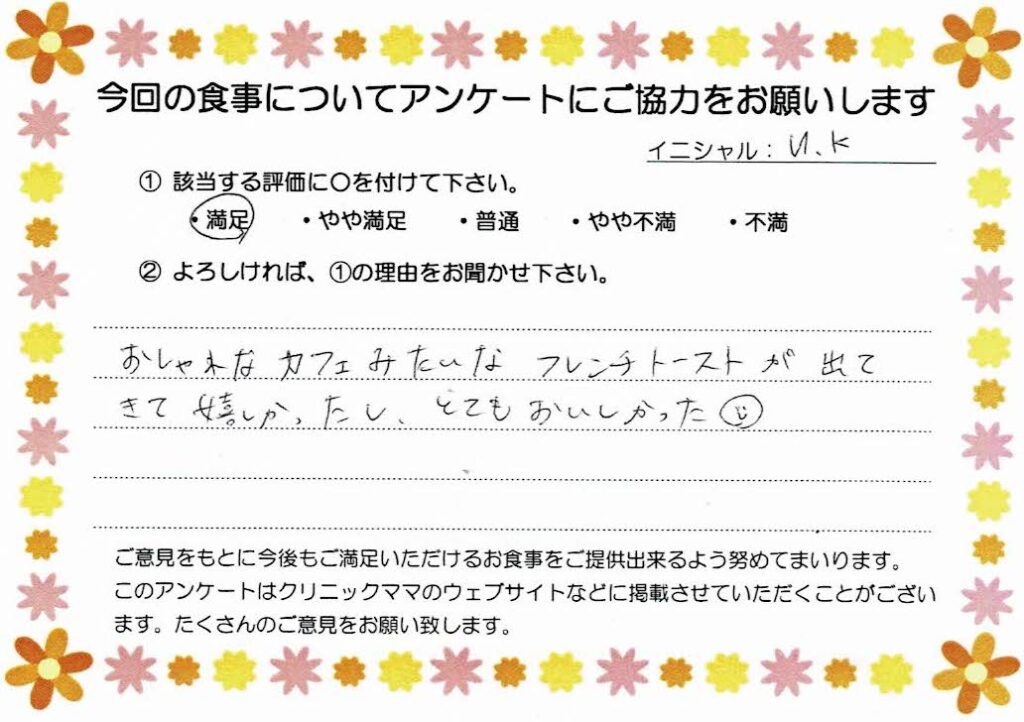 今回の食事についてアンケートにご協力をお願いします
イニシャル：U.K
① 該当する評価に○を付けて下さい。
・満足 ・やや満足 ・普通 ・やや不満 ・不満
② よろしければ、①の理由をお聞かせ下さい。
おしゃれな カフェみたいな フレンチトーストが 出て
きて 嬉しかったし、とてもおいしかった
ご意見をもとに今後もご満足いただけるお食事をご提供出来るよう努めてまいります。
このアンケートはクリニックママのウェブサイトなどに掲載させていただくことがござい
ます。たくさんのご意見をお願い致します。